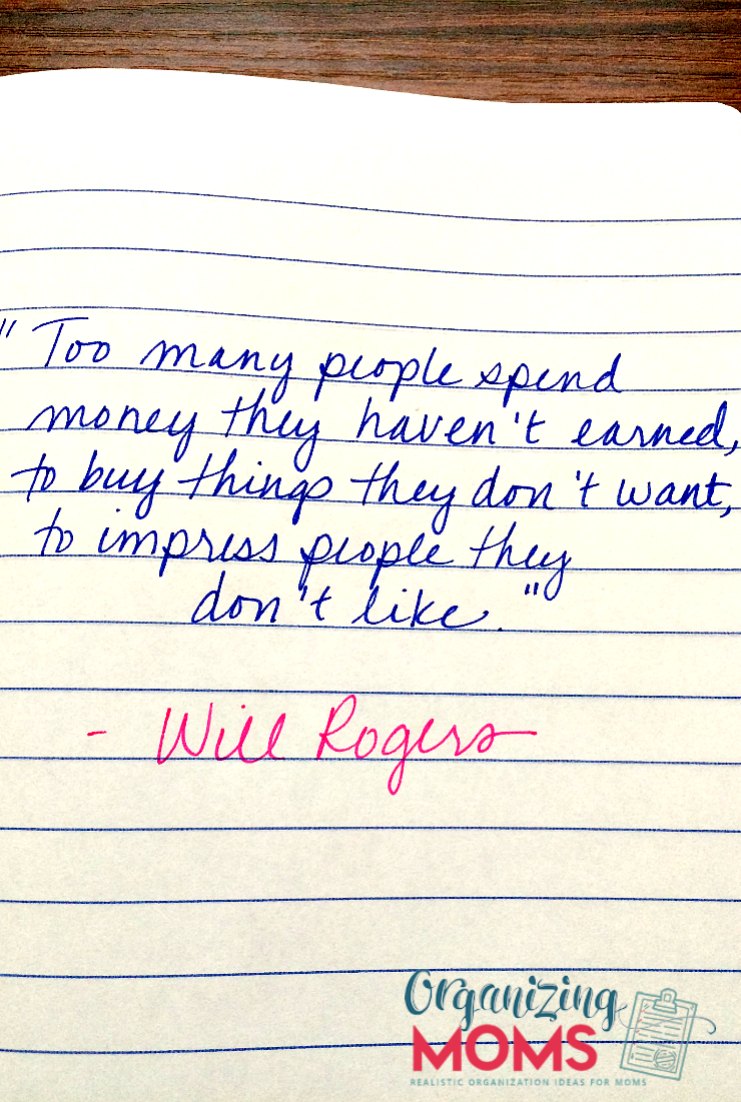 "Too many people spend
money they haven't earned,
to buy things they don't want,
to impress people they
don't like."
- Will Rogers
Organizing
MOMS
REALISTIC ORGANIZATION IDEAS FOR MOMS